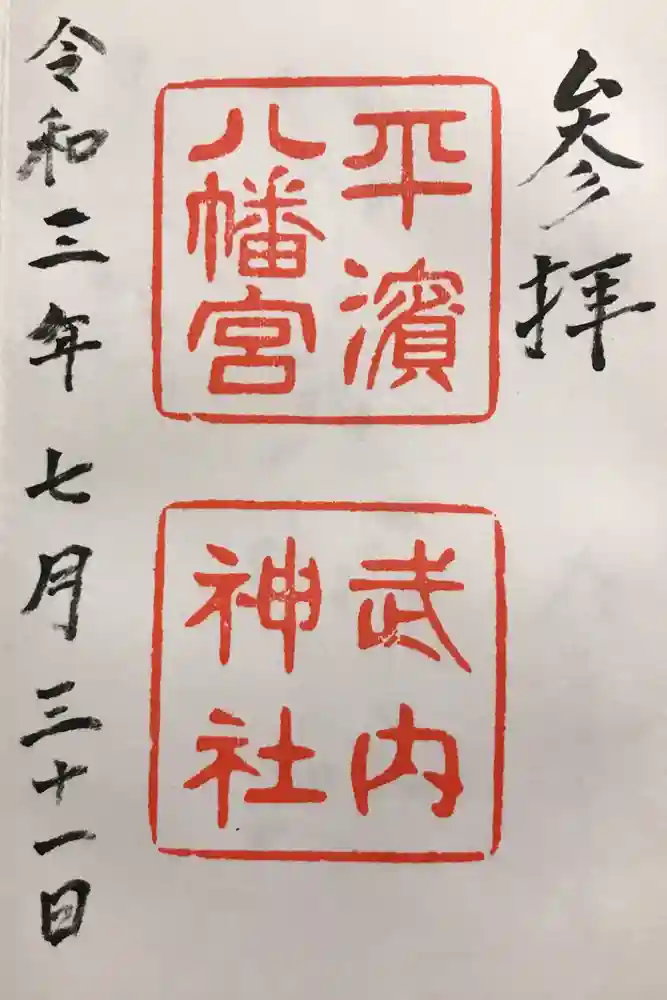 參拝
平濱
八幡宮
武内
神社
令和三年七月三十一日